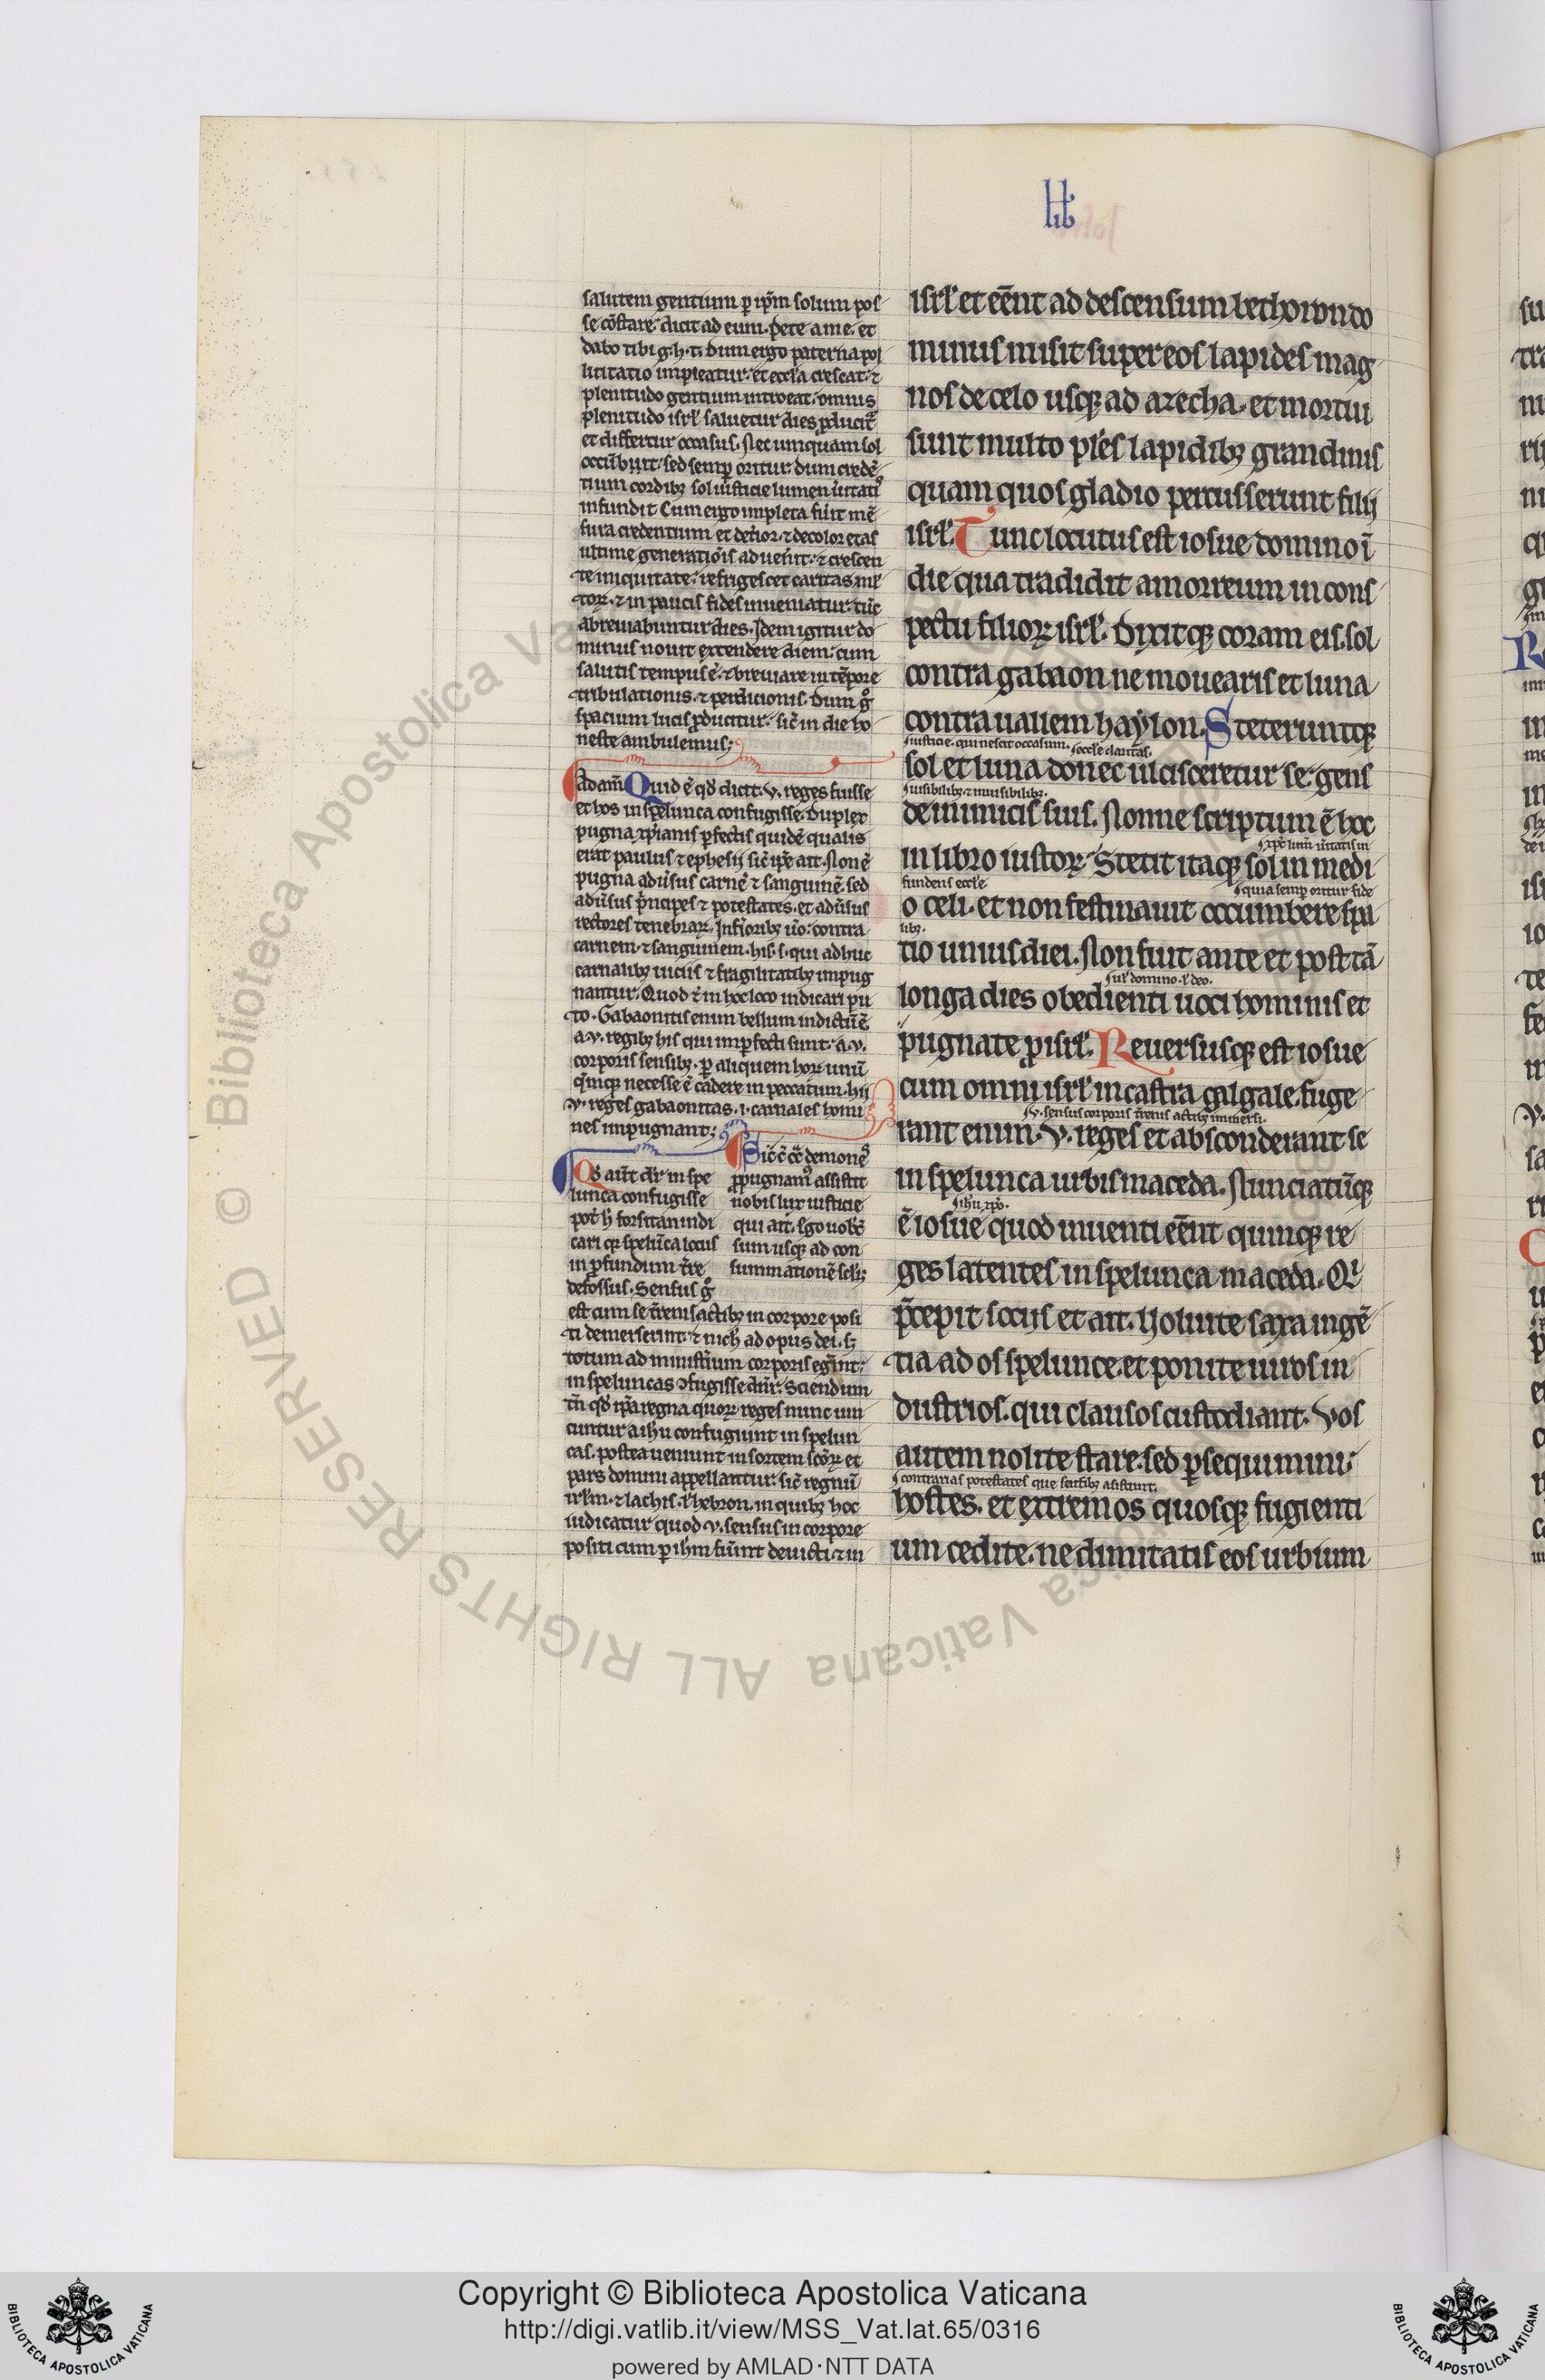 lib
salutem gentium ꝑ ip̃m solum pos
se cõstare: dicit ad eum. Pete a me. et
dabo tibi g. h. t. Dum ergo paterna pol
licitatio impleatur: et ecc̃la crescat: ⁊
plenitudo gentium introeat. omnis
plenitudo isrl̃ saluetur dies ꝓducit᷑
et differtur occasus. Nec umquam sol
occũbunt. sed semp̃ oritur. dum credẽ
tium cordibꝫ sol iusticie lumen ũitatis
infundit. Cum ergo impleta fũit mẽ
sura credentium et det̃ior ⁊ decolor etas
ultime generatiõis aduen̾it: ⁊ crescen
te iniquitate: refrigescet caritas ml̃
toꝝ. ⁊ in paucis fides inueniatur. tũc
abreuiabuntur dies. Idem igitur do
minus nouit extendere diem: cum
salutis tempus ẽ: ⁊ breuiare in tẽpore
tribulationis. ⁊ perdicionis. Dum g̊
spacium lucis ꝓducitur: sic̃ in die ho
neste ambulemus;
Adam̃ Quid ẽ qd̾ dicit. v. reges fuisse
et hos in spelunca confugisse. Duplex
pugna xp̃ianis ꝑfectis quidẽ qualis
erat paulus ⁊ ephesij sic̃ ip̃e ait. Non ẽ
pugna adũsus carnẽ ⁊ sanguinẽ. sed
adũsus p̃ncipes ⁊ potestates. et adũsus
rectores tenebraꝝ. Inf̃ioribꝫ ũo: contra
carnem. ⁊ sanguinem. his. s. qui adhuc
carnalibꝫ uiciis ⁊ fragilitatibꝫ inpug
nantur. Quod ⁊ in hoc loco indicari pu
to. Gabaonitis enim bellum indictũ ẽ
a. v. regibꝫ his qui imꝑfecti sunt: a. v.
corporis sensibꝫ. ꝑ aliquem hoꝝ unũ
q̃mcqꝫ necesse ẽ cadere in peccatum. hij
v. reges gabaonitas. i. carnales homi
nes inpugnant;
Qd̾ aũt dr̃ in spe
lunca confugisse
pot̾ h̾ forsitan indi
cari qꝫ spelũca locus
in ꝓfundum t̃re
defossus. Sensus g̊
est cum se t̃renis actibꝫ in corpore posi
ti demerserint ⁊ nich̾ ad opus dei. sꝫ
totum ad minist̃ium corporis eg̃int:
in speluncas ɔfugisse dñr̃. Sciendum
tñ qd̾ ip̃a regna quoꝝ reges nunc uin
cuntur a ihu confugiunt in spelun
cas. postea ueniunt in sortem sc̃oꝝ et
pars domini appellantur: sic̃ regnũ
irl̃m. ⁊ lachis. l̾ hebron. in quibꝫ hoc
iudicatur quod v. sensus in corpore
positi cum ꝑ ihm̃ fũint deuicti. ⁊ in
Sic̃ c̃ c̃e demones
ꝓpugnam᷒ assistit
nobis lux iusticie
qui ait. Ego uobc̃
sum usqꝫ ad con
summationẽ scl̃i;
isrl̃ et eẽnt ad descensum bethoron do
minus misit super eos lapides mag
nos de celo usqꝫ ad azecha. et mortui
sunt multo pl̾es lapidibꝫ grandinis
quam quos gladio percusserunt filij
isrl̃. Tunc locutus est iosue domino ĩ
die qua tradidit amorreum in cons
pectu filioꝝ isrl̃. Dixitqꝫ coram eis. sol
contra gabaon ne mouearis et luna
contra uallem haylon. Steteruntqꝫ
iusticie. qui nescit occasum. eccl̃e claritas.
sol et luna donec ulcisceretur se: gens
uisibilibꝫ ⁊ inuisibilibꝫ.
de inimicis suis. Nonne scriptum ẽ hoc
xp̃c lum̃ ũitatis in
in libro iustoꝝ. Stetit itaqꝫ sol in medi
fundens eccl̃e
quia semp̃ oritur fide
o celi. et non festinauit occumbere spa
libꝫ.
tio unius diei. Non fuit ante et post tã
iur̃ domino. l̾ deo.
longa dies obedienti uoci hominis et
pugnate ꝓ isrl̃. Reuersusqꝫ est iosue
cum omni isrl̃ in castra galgale. fuge
v. sensus corporis t̃renis actibꝫ inmersi.
rant enim. v. reges et absconderant se
in spelunca urbis maceda. Nunciatũqꝫ
ihu xp̃o.
ẽ iosue quod inuenti eẽnt quinqꝫ re
ges latentes in spelunca maceda. Qi
p̃cepit sociis et ait. Voluite saxa ingẽ
tia ad os spelunce. et ponite uiros in
dustrios. qui clausos custodiant. Vos
autem nolite stare. sed ꝑsequimini
contrarias potestates que sensibꝫ assistunt.
hostes. et extremos quosqꝫ fugienti
um cedite. ne dimittatis eos urbium
© Biblioteca Apostolica Vaticana ALL RIGHTS RESERVED
Copyright © Biblioteca Apostolica Vaticana
http://digi.vatlib.it/view/MSS_Vat.lat.65/0316
powered by AMLAD·NTT DATA
BIBLIOTECA APOSTOLICA VATICANA
BIBLIOTECA APOSTOLICA VATICANA